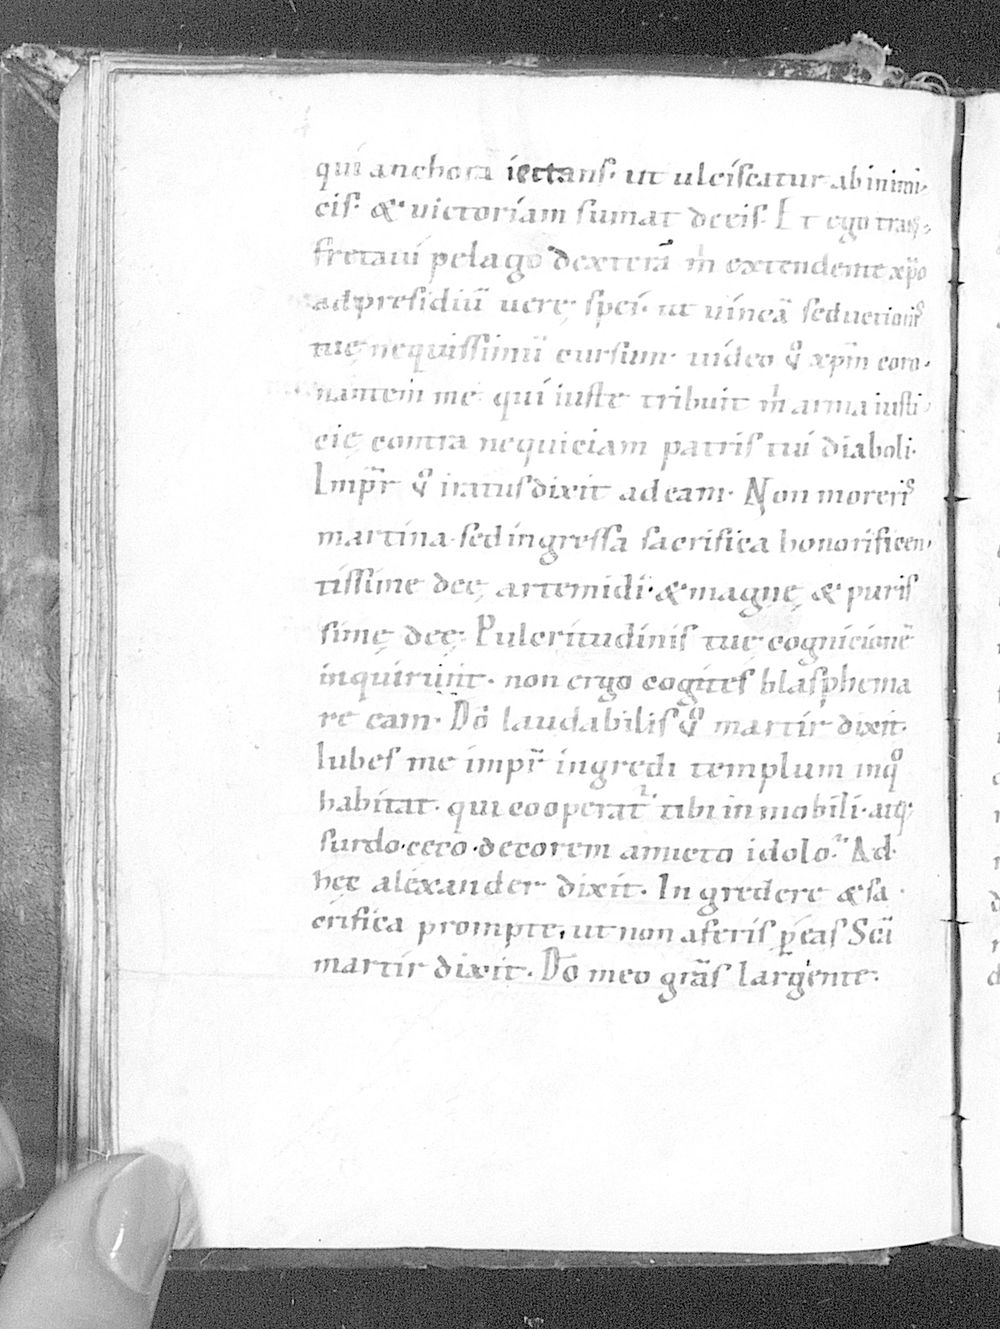 qui anchora iectans· ut ulciscatur ab inimi-
cis· & uictoriam sumat de eis· Et ego tras-
fretaui pelago dexterā m̄ extendente xp̄o
ad presidiū uere spei· ut uincā seductionis
tuę nequissimū cursum· uideo ꝟ xp̄m coro-
nantem me· qui iuste tribuit m̄ arma iusti-
cię contra nequiciam patris tui diaboli·
Imp̄r ꝟ iratus dixit ad eam· Non moreris
martina· sed ingressa sacrifica honorificen-
tissime deę artemidi· & magnę & puris
simę deę· Pulcritudinis tuę cognicionē
inquirunt· non ergo cogites blasphema
re eam· Dō laudabilis ꝟ martir dixit·
Iubes me imp̄r ingredi templum in qͦ
habitat· qui cooperat᷑ tibi in mobili· atq;
surdo· ceco· decorem amicto idolo· Ad
hęc alexander dixit· Ingredere & sa-
crifica prompte, ut non a feris p̄eas Scā
martir dixit· Dō meo grās largiente·